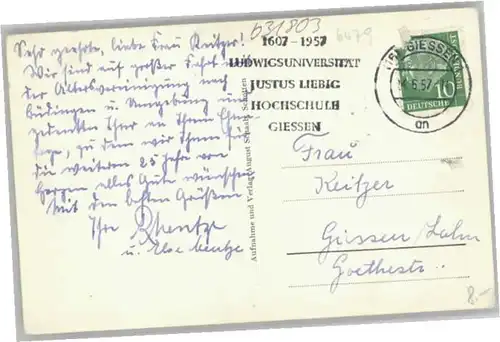 631803
6479
Sehr geehrte, liebe Frau Keitzer!
Wir sind auf großer Fahrt mit
der Altersvereinigung nach
Büdingen u. Umgebung und
gedenken Ihrer an Ihrem
zu dem wir Ihnen für
die weiteren 25 Jahre von
Herzen alles Gute wünschen
Mit den besten Grüßen
Ihre
u. Else
Aufnahme und Verlag August Schaaf, Schotten
1607 - 1957
LUDWIGSUNIVERSITÄT
JUSTUS LIEBIG
HOCHSCHULE
GIESSEN
GIESSEN
6.57
an
10
DEUTSCHE
Frau
Keitzer
Giessen/Lahn
Goethestr.
8.-